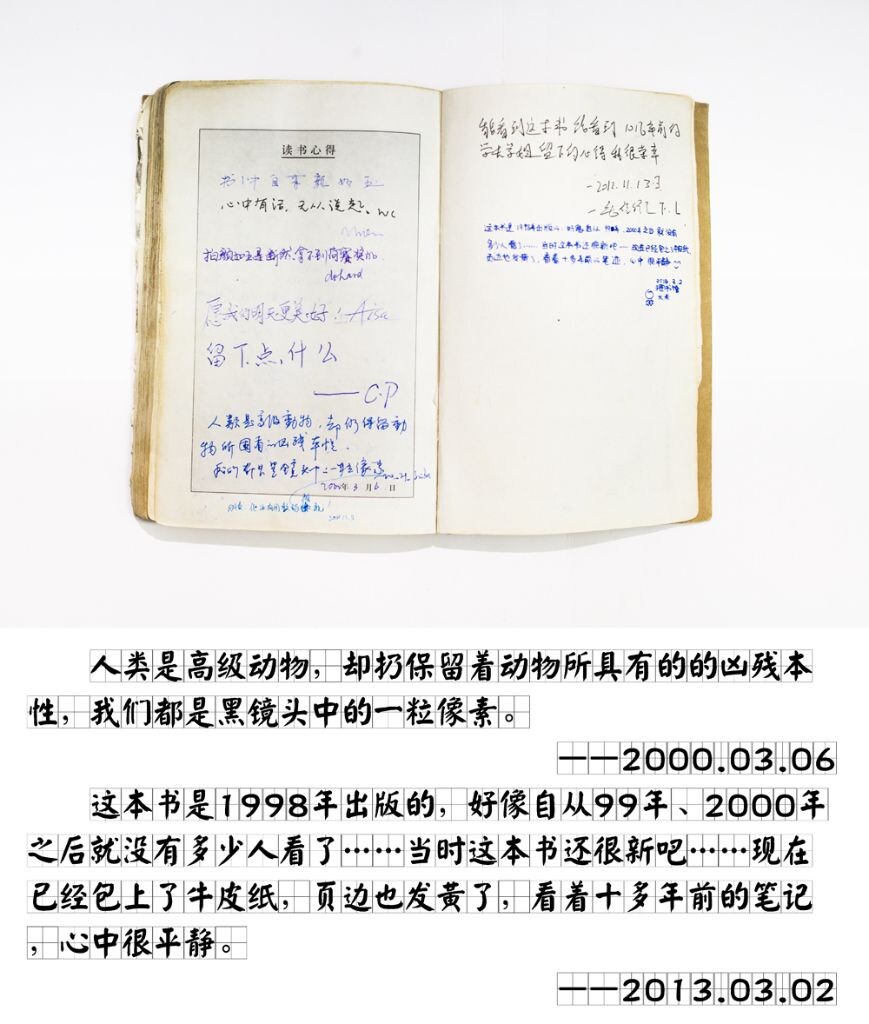 读书心得
书中自有颜如玉
心中有话，无从说起、wc
愿我们明天更美好！Aisa
留下点什么
——C.P
人类是高级動物，却仍保留動
物所固有的凶残本性。
2000年3月6日
能看到这本书 能看到 10几年前的
学长学姐留下的心得 我很荣幸
—2012.11.13
这本书是1998年出版的，好像自从99年、2000年之后就没有
多少人看了……当时这本书还很新吧……现在已经包上了牛皮纸，
页边也发黄了，看着十多年前的笔迹，心中很平静
2013.3.2
人类是高级动物，却扔保留着动物所具有的的凶残本
性，我们都是黑镜头中的一粒像素。
——2000.03.06
这本书是1998年出版的，好像自从99年、2000年
之后就没有多少人看了……当时这本书还很新吧……现在
已经包上了牛皮纸，页边也发黄了，看着十多年前的笔记
，心中很平静。
——2013.03.02